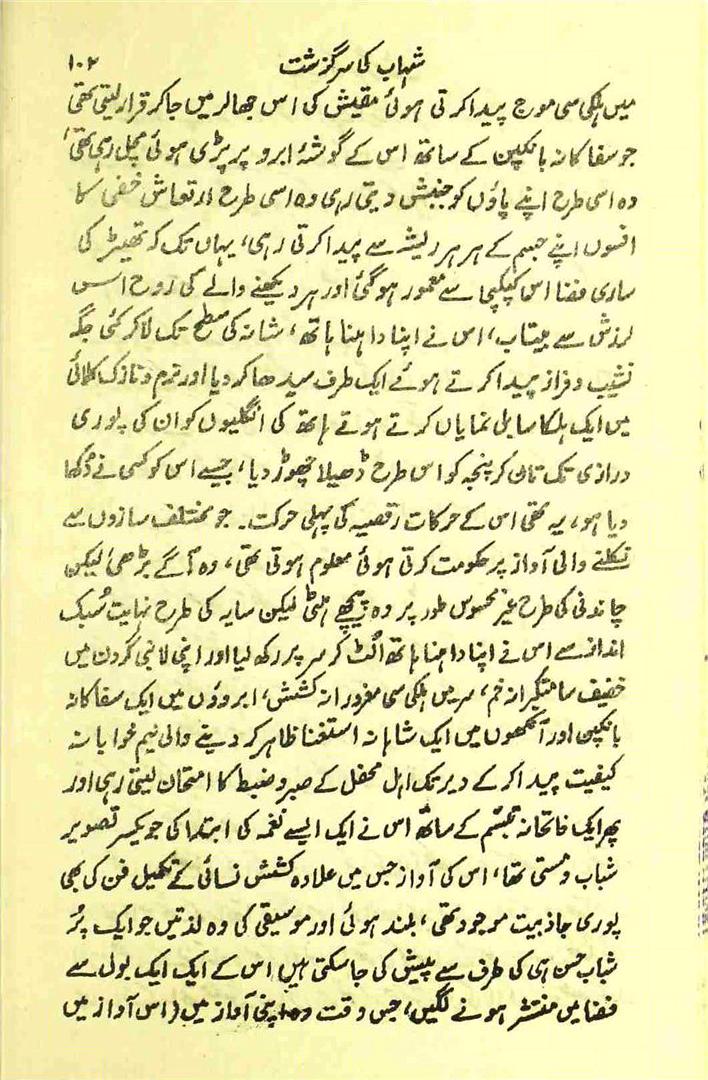 شہاب کا سرگزشت
۱۰۲
میں ہلکی سی موج پیدا کرتی ہوئی مقیش کی اس جھالر میں جا کر قرار لیتی تھی
جو سفاکانہ بانکپن کے ساتھ اس کے گوشۂ ابرو پر پڑی ہوئی مچل رہی تھی،
وہ اسی طرح اپنے پاؤں کو جنبش دیتی رہی وہ اسی طرح ارتعاش خفی کا
افسوں اپنے جسم کے ہر ہر ریشہ سے پیدا کرتی رہی، یہاں تک کہ تھیٹر کی
ساری فضا اس کپکپی سے معمور ہو گئی اور ہر دیکھنے والے کی روح اس
لرزش سے بیتاب، اس نے اپنا داہنا ہاتھ، شانہ کی سطح تک لا کر کئی جگہ
نشیب و فراز پیدا کرتے ہوئے ایک طرف سیدھا کر دیا اور نرم و نازک کلائی
میں ایک ہلکا سا بل نمایاں کرتے ہوتے ہاتھ کی انگلیوں کو ان کی پوری
درازی تک تان کر پنجہ کو اس طرح ڈھیلا چھوڑ دیا، جیسے اس کو کسی نے دُکھا
دیا ہو، یہ تھی اس کے حرکات رقصیہ کی پہلی حرکت۔ جو مختلف سازوں سے
نکلنے والی آواز پر حکومت کرتی ہوئی معلوم ہوتی تھی، وہ آگے بڑھی لیکن
چاندنی کی طرح غیر محسوس طور پر وہ پیچھے ہٹی لیکن سایہ کی طرح نہایت سُبک
انداز سے اس نے اپنا داہنا ہاتھ اُلٹ کر سر پر رکھ لیا اور اپنی لانبی گردن میں
خفیف سا متکبرانہ خم، سر میں ہلکی سی مغرورانہ کشش، ابروؤں میں ایک سفاکانہ
بانکپن اور آنکھوں میں ایک شاہانہ استغنا ظاہر کر دینے والی نیم خوابانہ
کیفیت پیدا کر کے دیر تک اہل محفل کے صبر و ضبط کا امتحان لیتی رہی اور
پھر ایک فاتحانہ تبسّم کے ساتھ اس نے ایک ایسے نغمہ کی ابتدا کی جو یکسر تصویر
شباب و مستی تھا، اس کی آواز جس میں علاوہ کشش نسائی کے تکمیل فن کی بھی
پوری جاذبیت موجود تھی، بلند ہوئی اور موسیقی کی وہ لذتیں جو ایک پُر
شباب حسن ہی کی طرف سے پیش کی جا سکتی ہیں اس کے ایک ایک بول سے
فضا میں منتشر ہونے لگیں، جس وقت وہ اپنی آواز میں (اس آواز میں